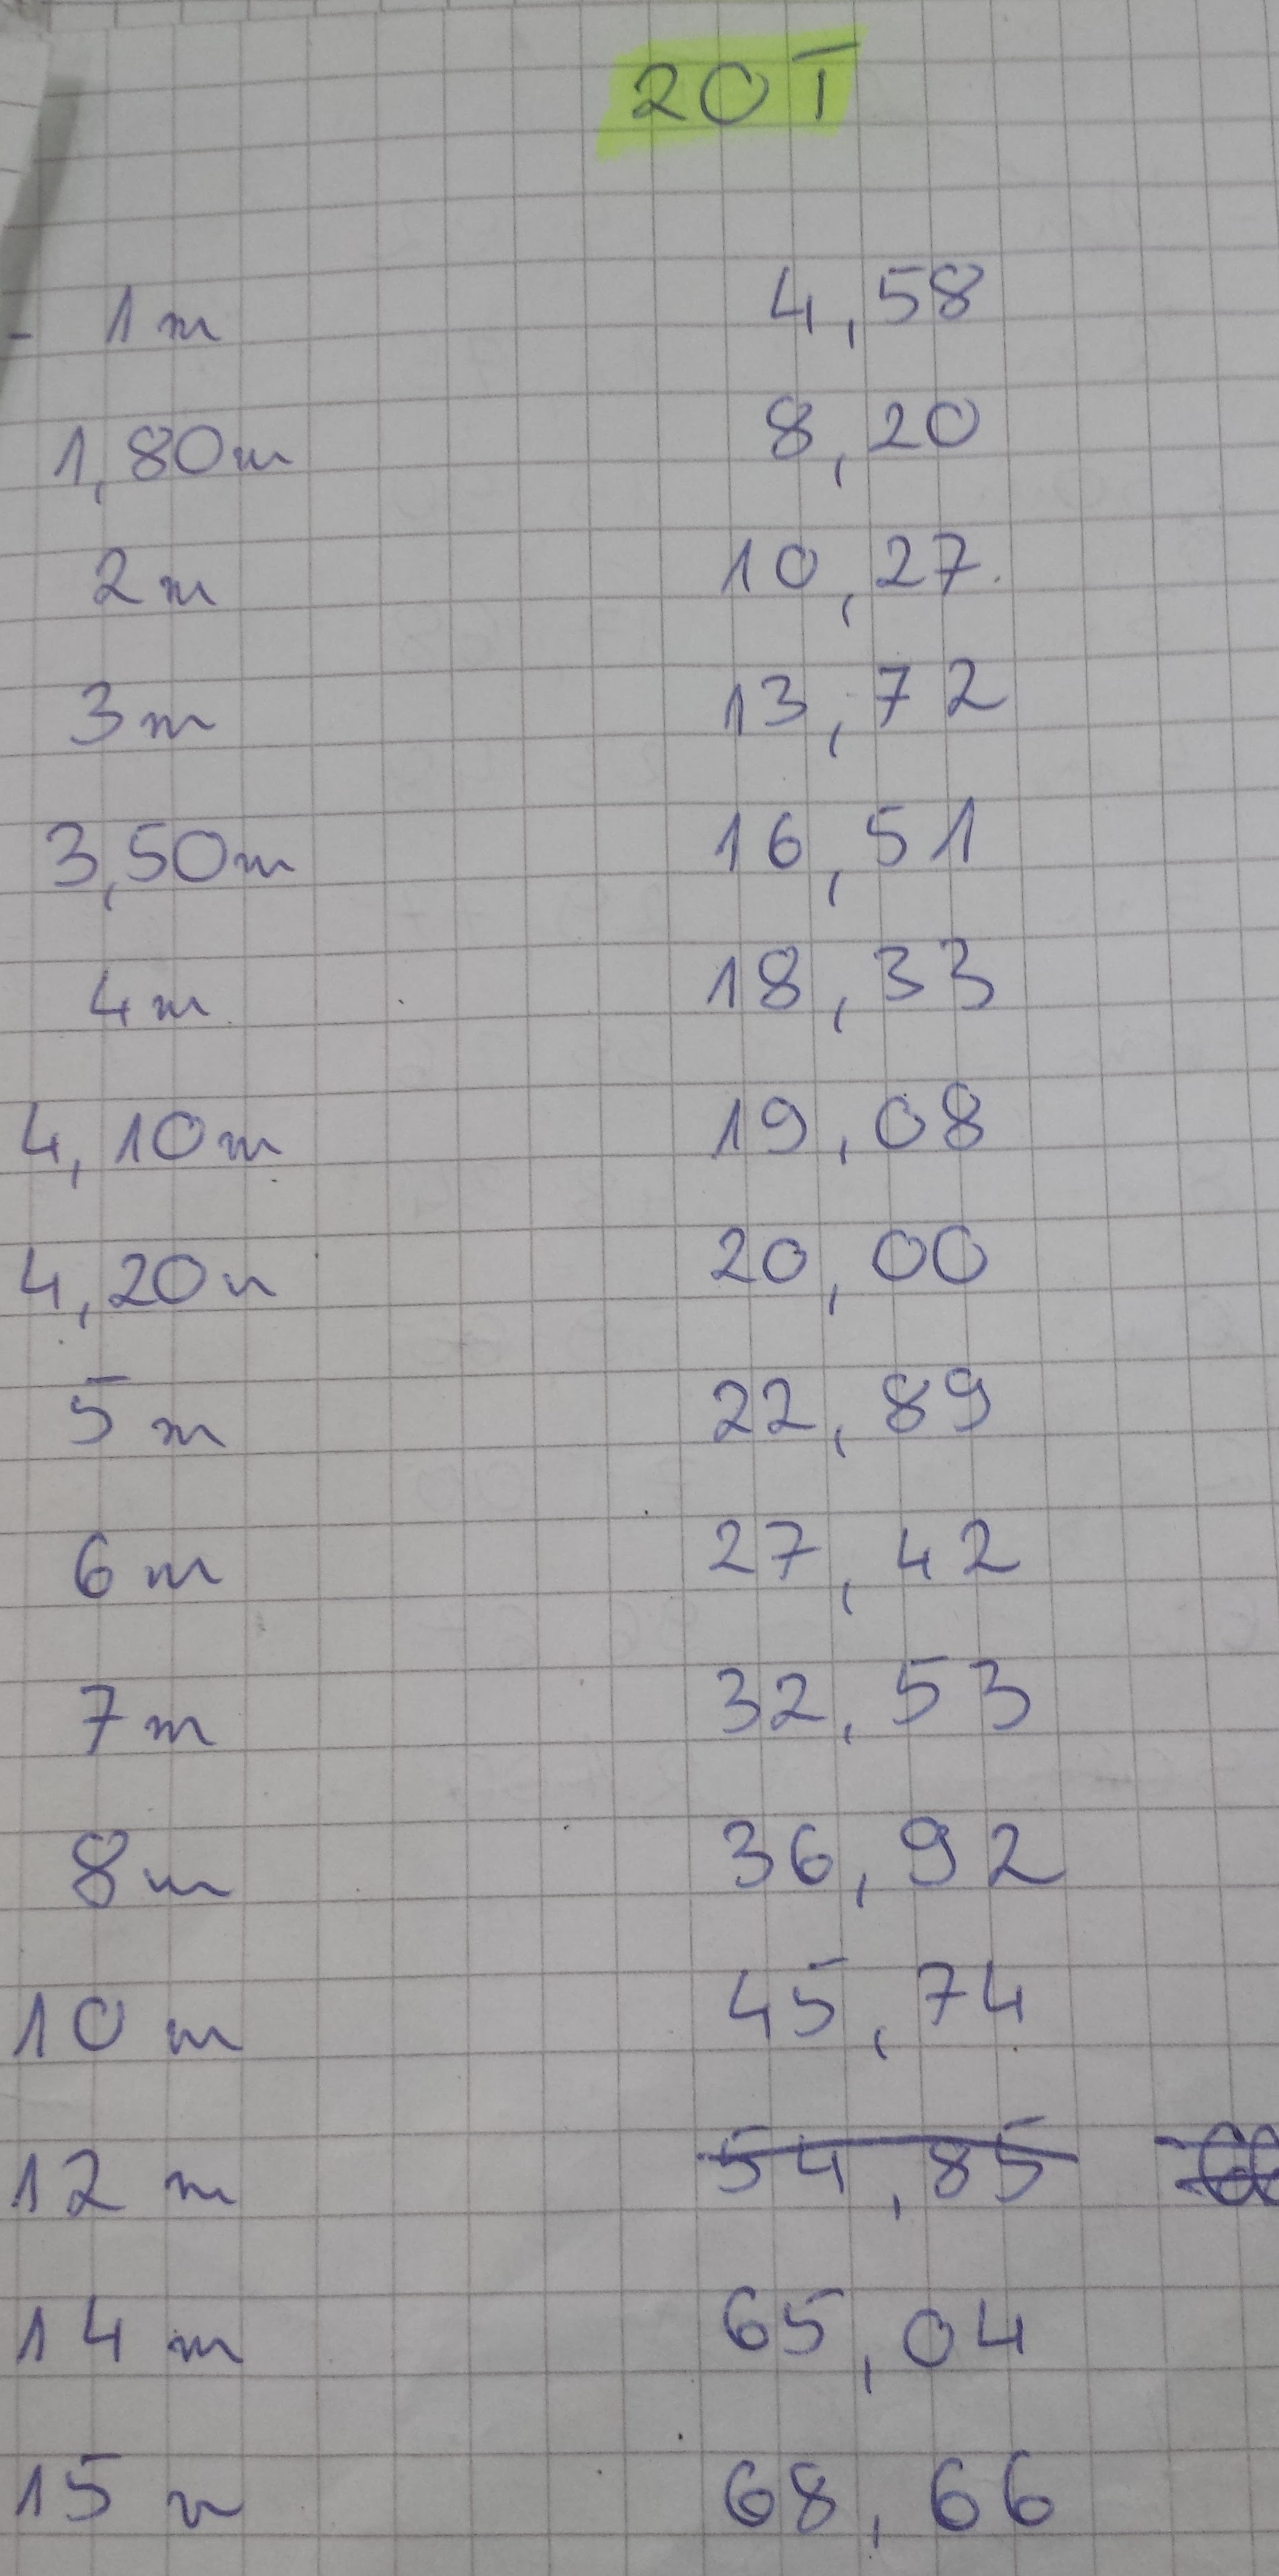 20T
- 1m 4,58
1,80m 8,20
2m 10,27
3m 13,72
3,50m 16,51
4m 18,33
4,10m 19,08
4,20m 20,00
5m 22,89
6m 27,42
7m 32,53
8m 36,92
10 m 45,74
12 m 54,85
14 m 65,04
15 m 68,66